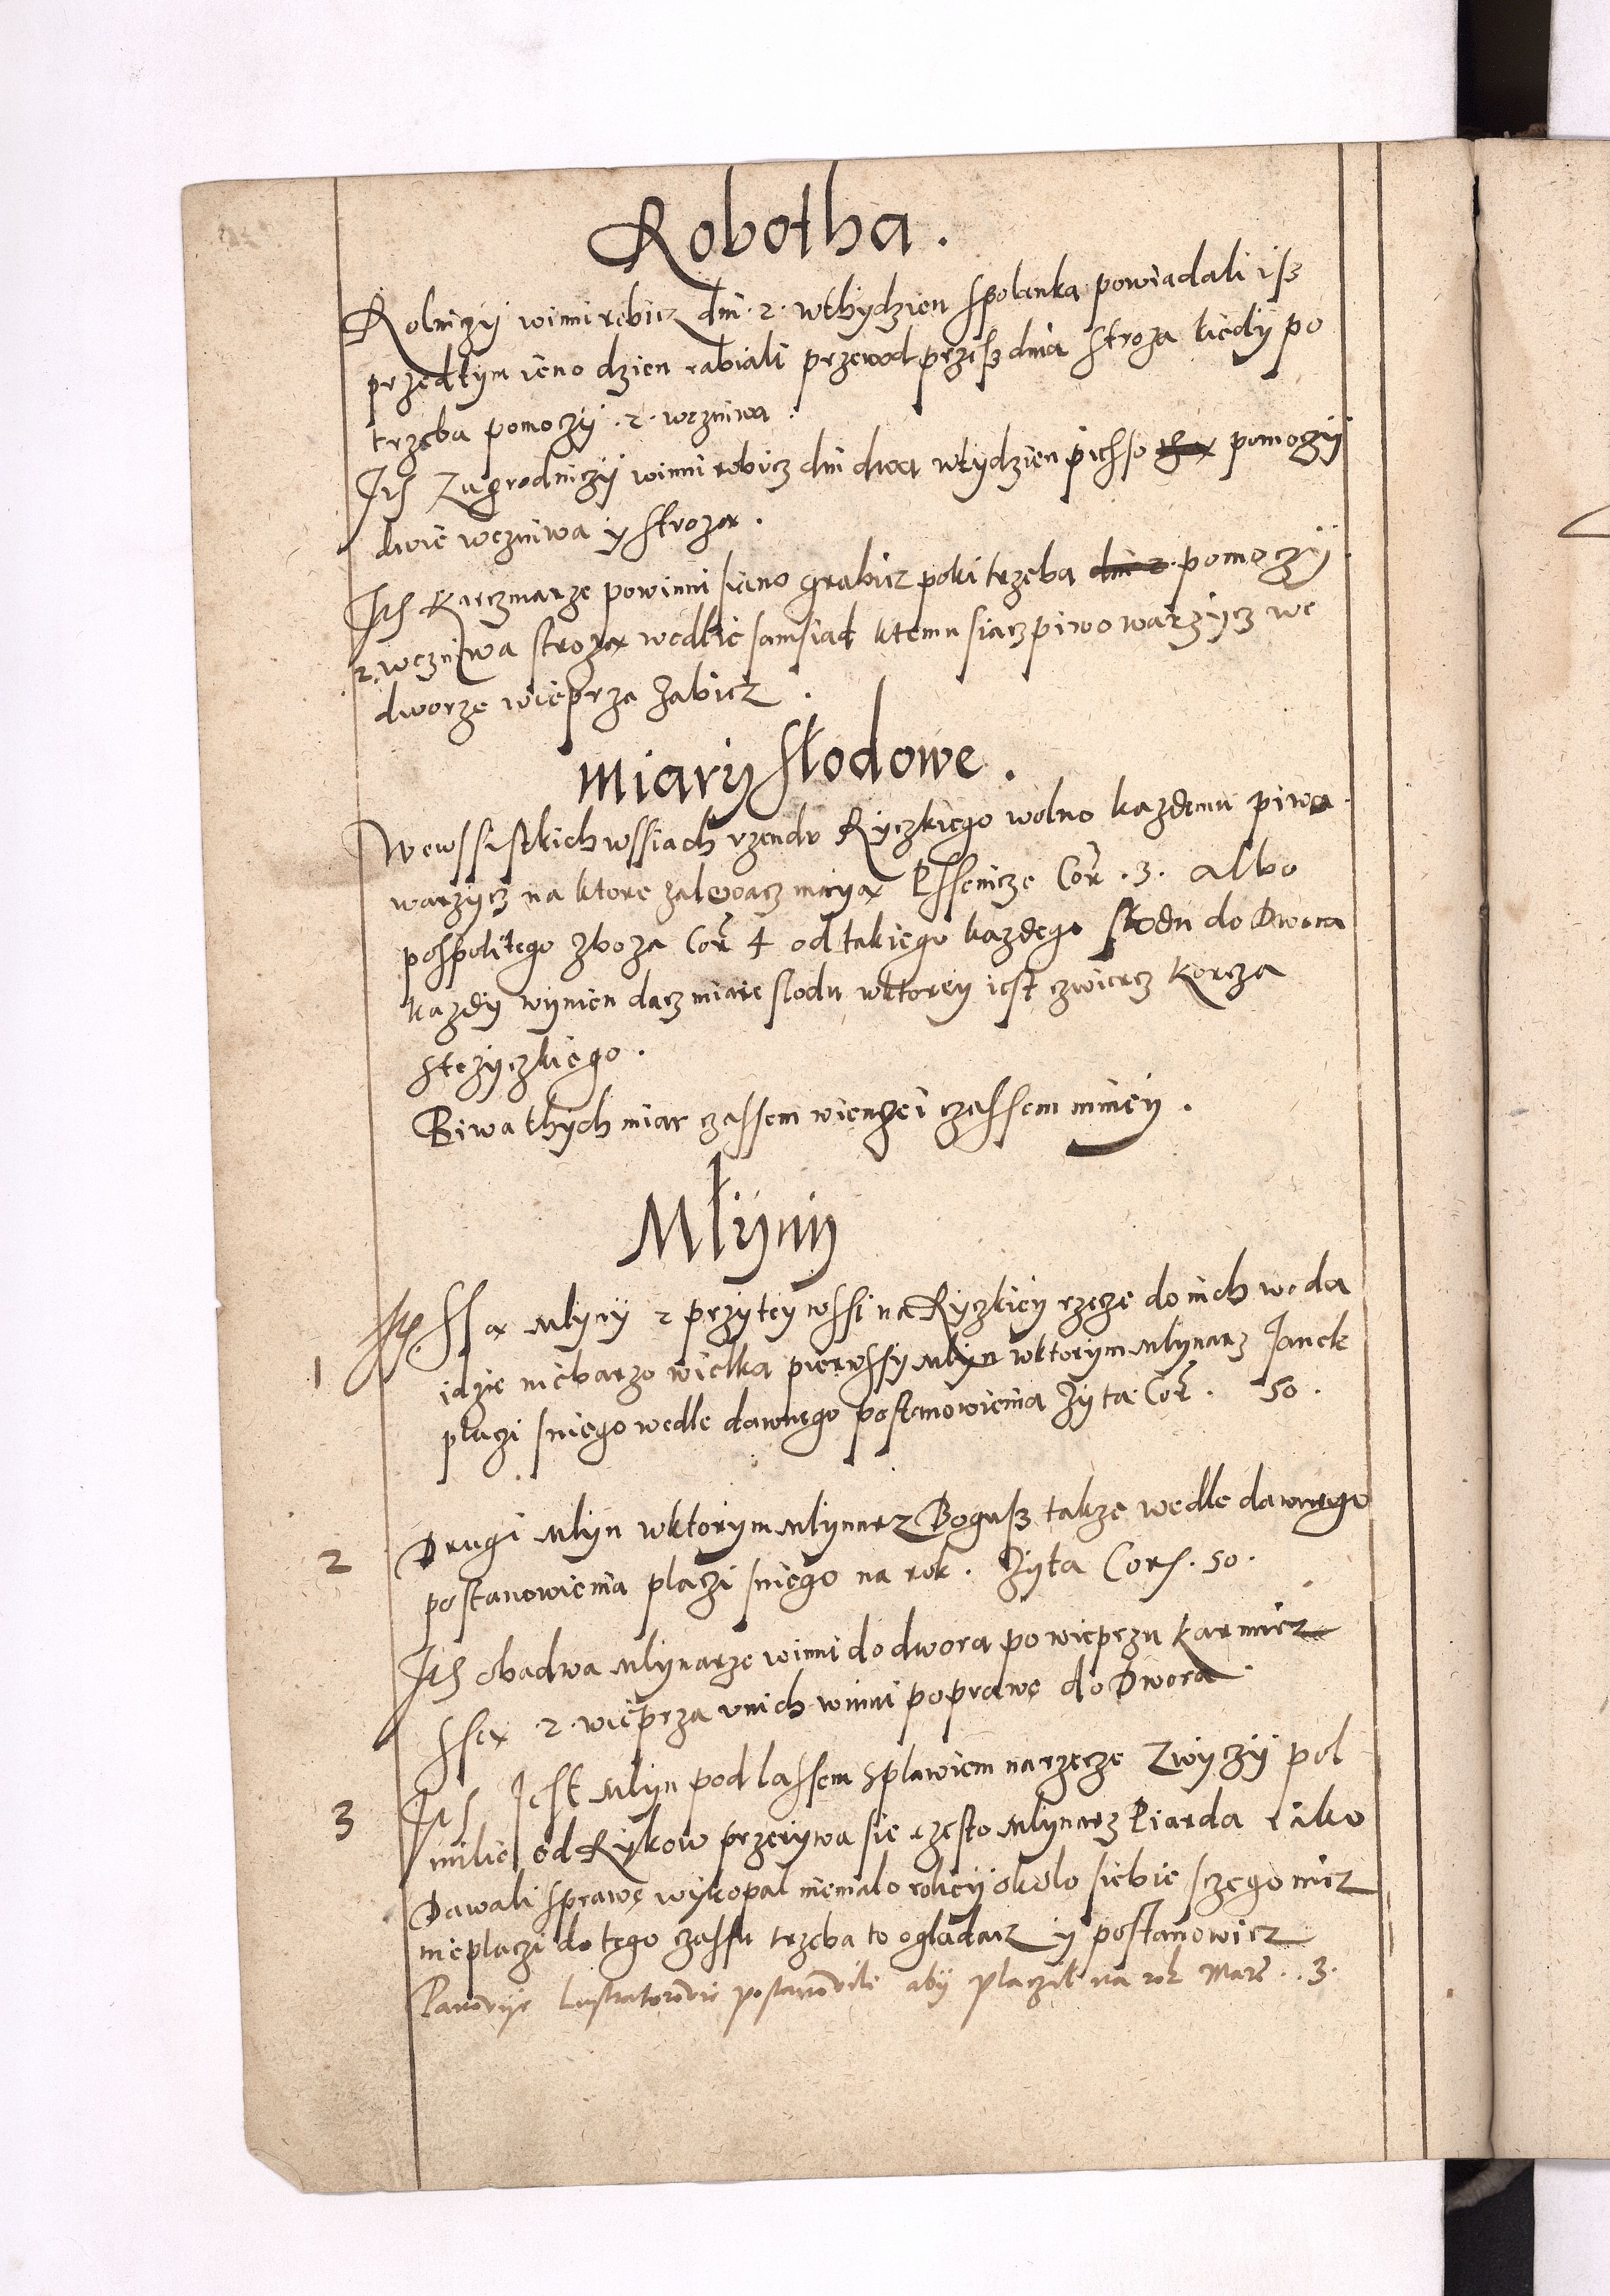 Robotha.
Rolniczy winni robicz dni .2. wthydzien spolanka powiadali isz
przedtym ieno dzien rabiali przewod przesz dnia stroza kiedy po
trzeba pomoczy .2. wezniwa.
Ith Zagrodniczy winni robicz dni dwa wtydzien pieszo pomoczy
dwie wezniwa y stroza.
Ith Karczmarze powinni sieno grabicz poki trzeba dni 2 pomoczy
.2. wezniwa stroza wedlie samsiad ktemu siacz piwo warzycz we
dworze wieprza zabicz.
miary słodowe.
Wewssistkich wssiach vrzendu Ryczkiego wolno kazdemu piwa
warzycz na ktore zalewacz maya Pssenicze Cor .3. Albo
pospolitego zboza Cor 4 od takiego kazdego słodu do Dwora
kazdy wynien dacz miare slodu wktorey iest czwiercz Korcza
stezyczkiego.
Biwa thych miar czassem wienczei czassem mniey.
Młyny
Ith Ssa Mlyny 2 przy tey wssi na Ryczkiey rzecze do nich woda
1 idzie niebarzo wielka pierwssy Mlyn wktorym Mlynarz Janek
placzi sniego wedle dawnego postanowienia Zyta Cor. 50.
2 Drugi Mlyn wktorym Mlynarz Bogusz takze wedle dawnego
postanowienia placzi sniego na rok. Zyta Cor. 50.
Ith obadwa Mlynarze winni do dwora po wieprzu karmicz
ssa .2. wieprza vnich winni poprawe do Dwora.
3 Ith Jest Mlyn pod lassem Splawiem na rzecze Zwyczy pol
milie od Rykow przerywa sie czesto Mlynarz Piarda iako
Dawali sprawe wykopal niemalo roliey okolo siebie sczego nicz
nieplaczi do tego czassu trzeba to ogladacz y postanowicz
Panowye Lustratorowie postanowili aby placzil na rok Mar. .3.